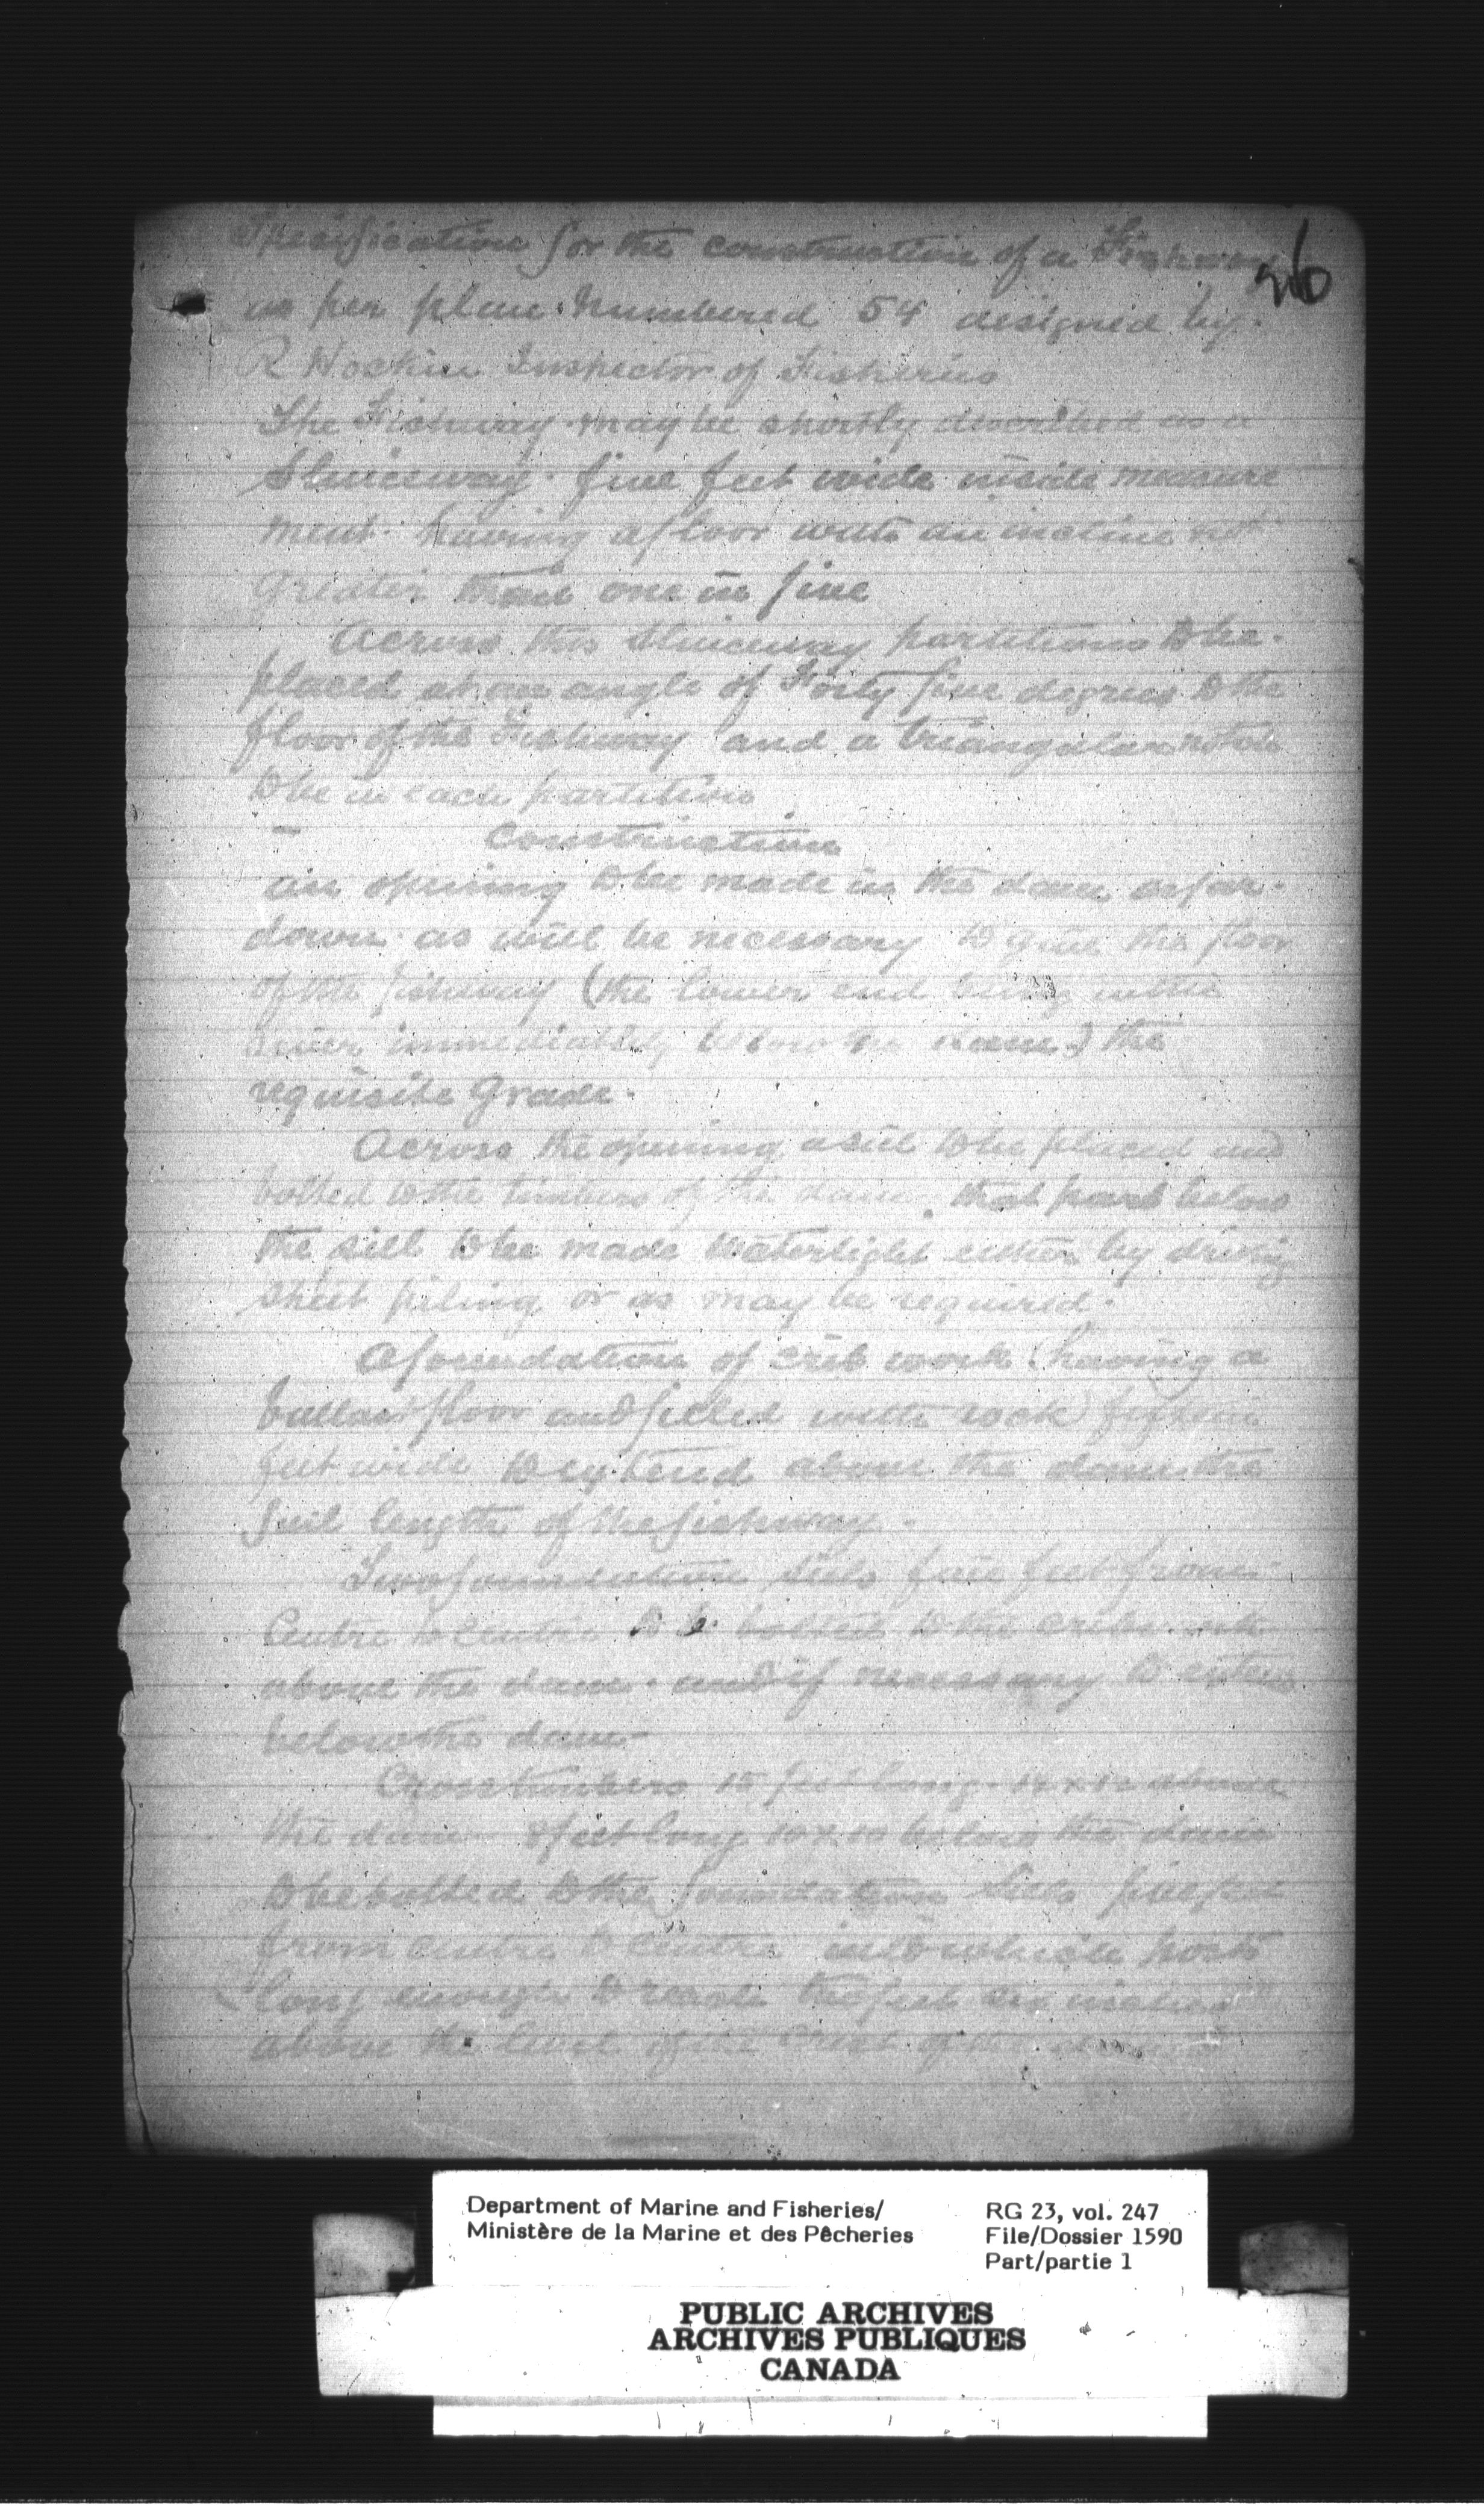 Specification for the construction of a Fishway
26
as per plan Numbered 54 designed by
R Hockin Inspector of Fisheries
The Fishway may be shortly described as a
Sluiceway five feet wide inside measure
ment having a floor with an incline not
greater than one in five
Across this sluiceway partitions to be
placed at an angle of Forty five degrees to the
floor of the Fishway and a triangular notch
to be in each partition
Construction
an opening to be made in the dam as far
down as will be necessary to give the floor
of the fishway (the lower end being in the
river immediately below the dam) the
requisite grade.
Across the opening a sill to be placed and
bolted to the timbers of the dam. that part below
the sill to be made watertight either by driving
sheet piling or as may be required.
A foundation of crib work (having a
ballast floor and filled with rock) fifteen
feet wide to extend above the dam the
full length of the fishway.
Two foundation sills five feet from
Centre to centre to be bolted to the cribwork
above the dam. and if necessary to extend
below the dam
Cross timbers 15 feet long above
the dam feet long 10 x 10 below the dam
to be bolted to the foundation sills five feet
from centre to centre into which posts
long enough to reach two feet six inches
above the level of the crest of the
Department of Marine and Fisheries/
Ministère de la Marine et des Pêcheries
RG 23, vol. 247
File/Dossier 1590
Part/partie 1
PUBLIC ARCHIVES
ARCHIVES PUBLIQUES
CANADA